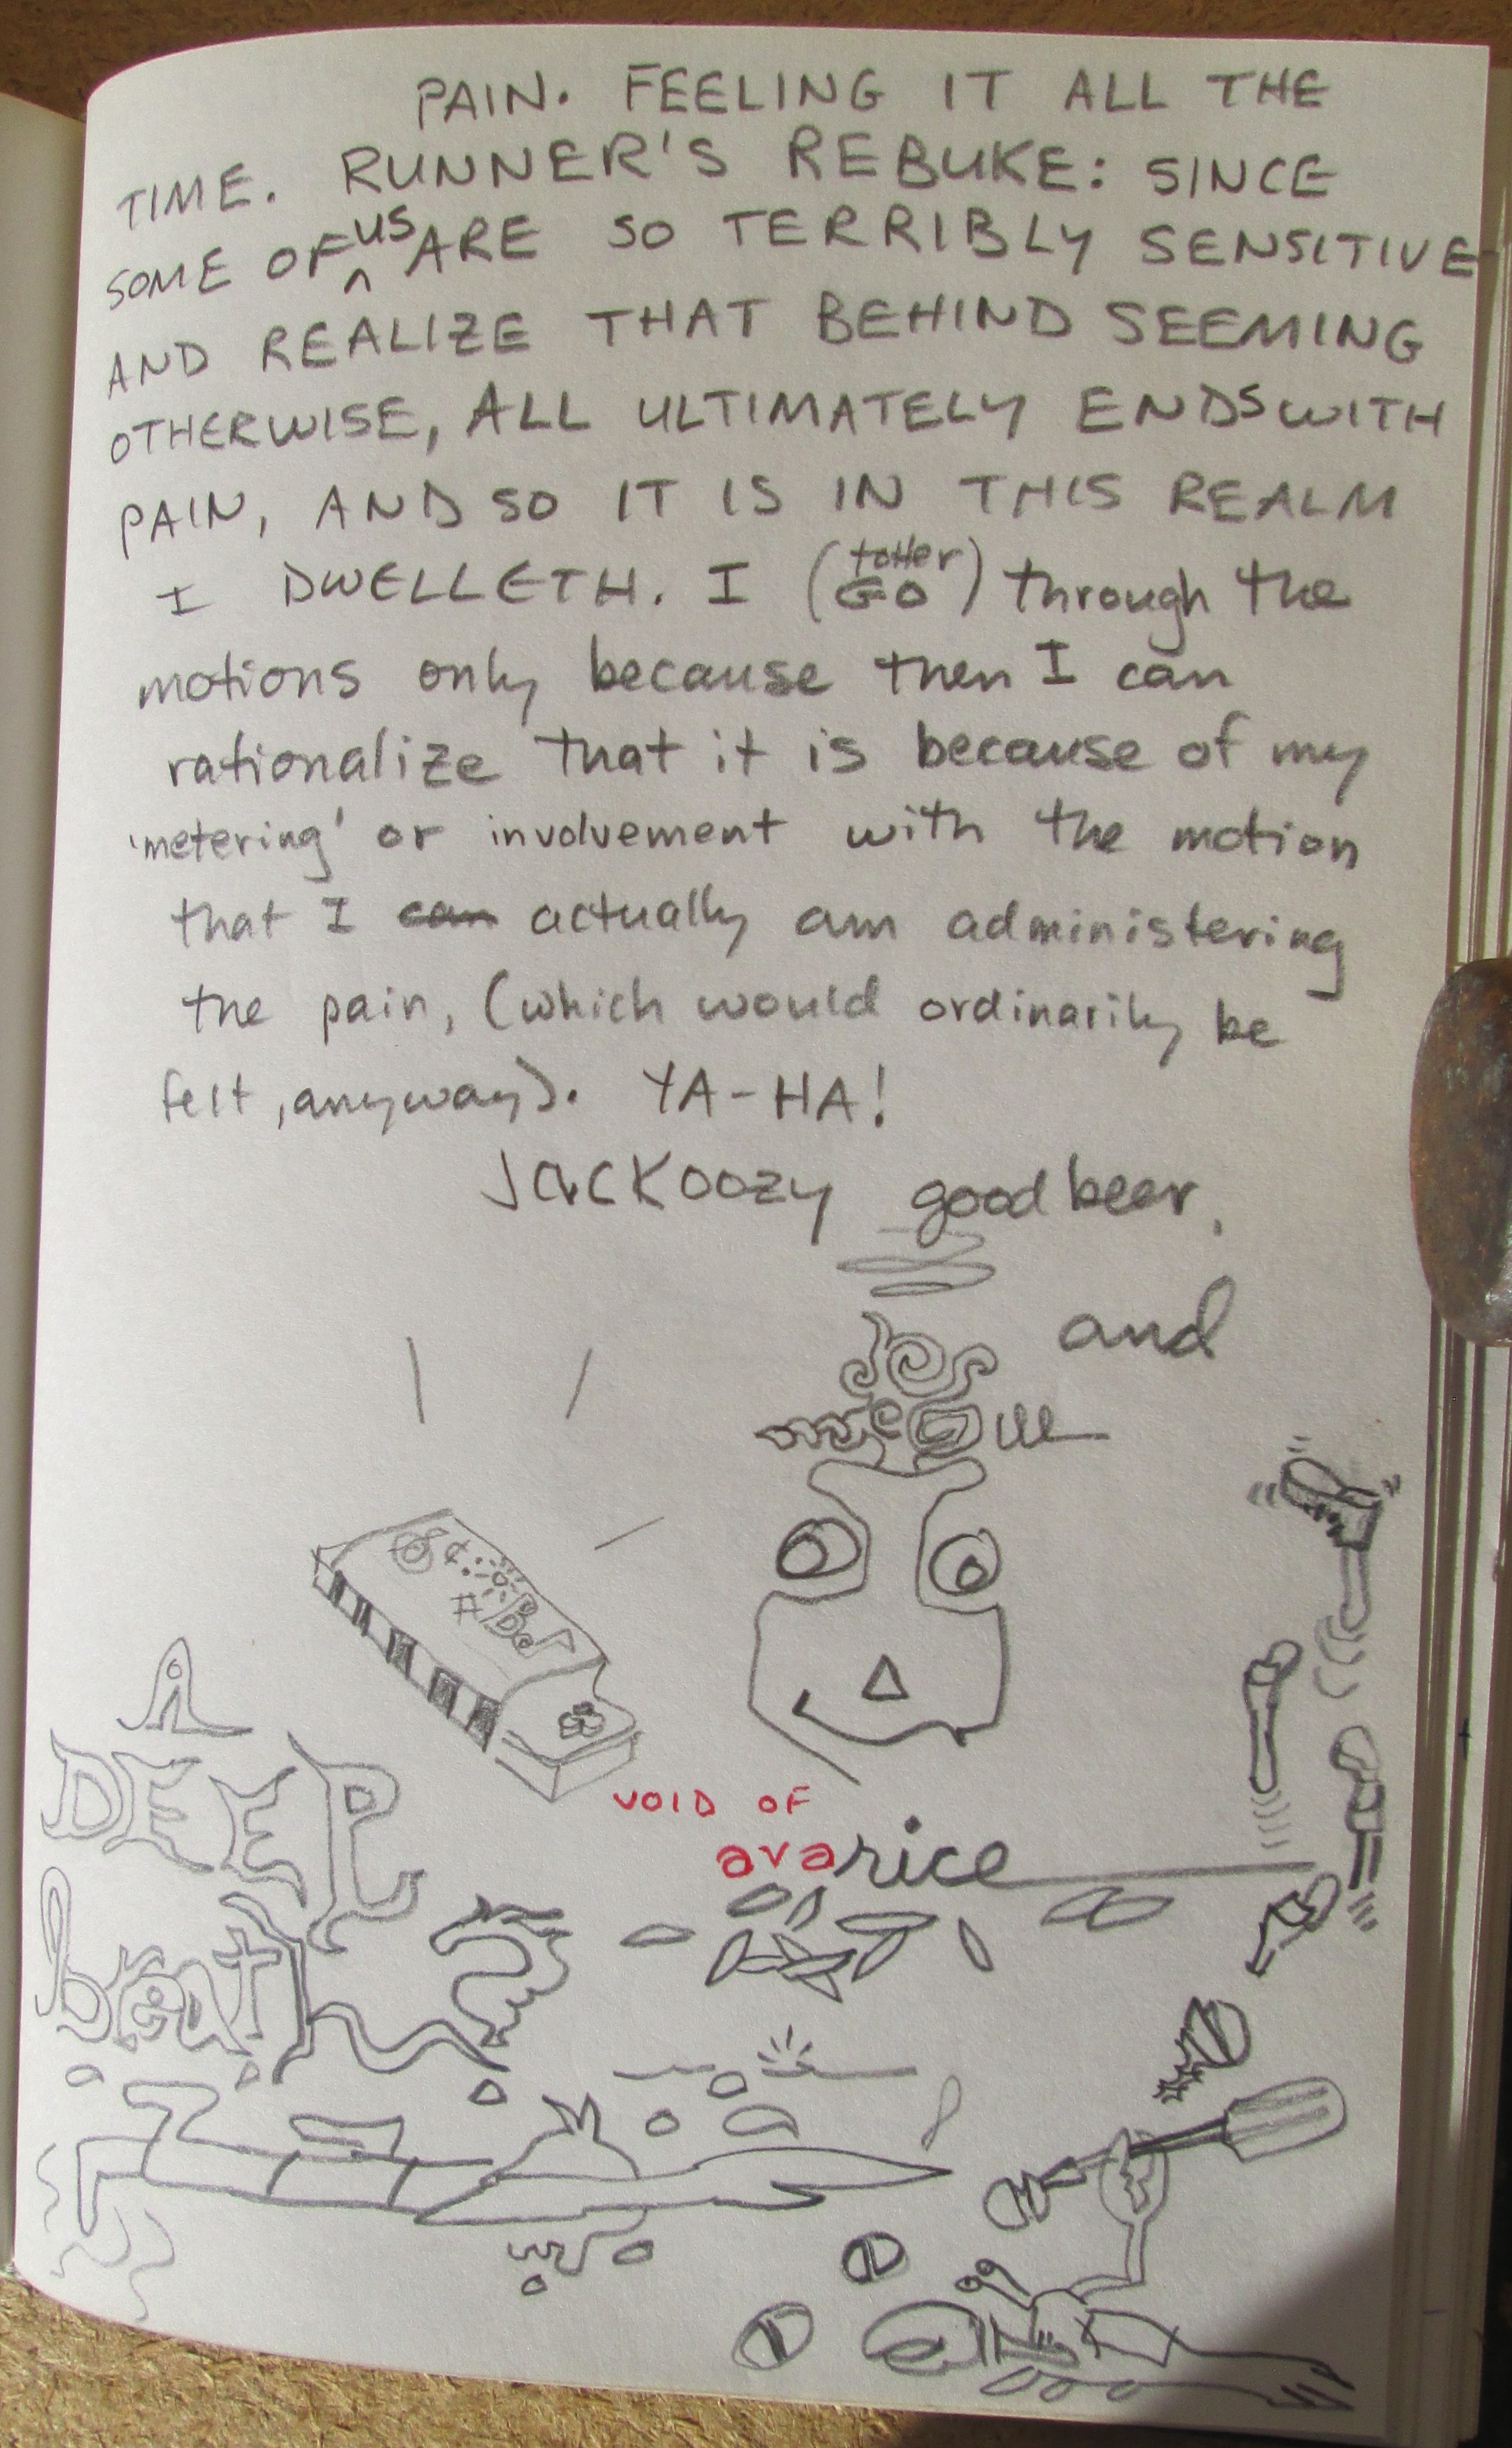 PAIN. FEELING IT ALL THE
TIME. RUNNER'S REBUKE: SINCE
SOME OF ^ US ARE SO TERRIBLY SENSITIVE
AND REALIZE THAT BEHIND SEEMING
OTHERWISE, ALL ULTIMATELY ENDS WITH
PAIN, AND SO IT IS IN THIS REALM
I DWELLETH. I (totter GO) through the
motions only because then I can
rationalize that it is because of my
'metering' or involvement with the motion
that I can actually am administering
the pain, (which would ordinarily be
felt, anyway). YA-HA!
JACKOOZY good beer.
and
A
DEEP
breat
VOID OF
avarice